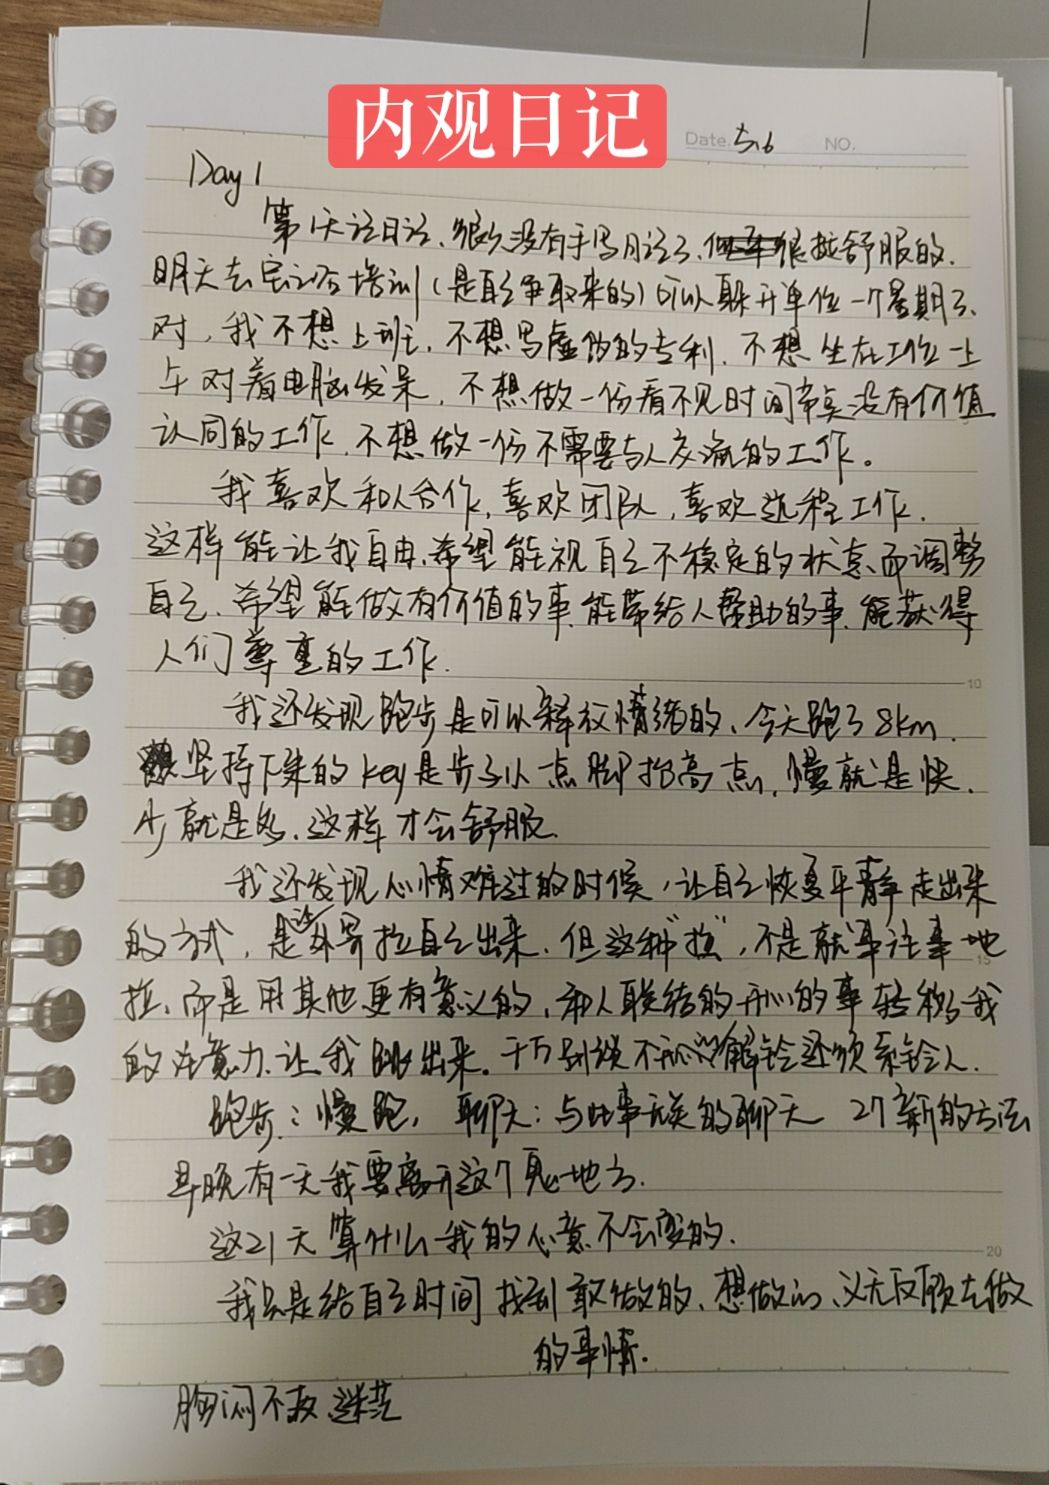 内观日记
Date. 5.6 NO.
Day 1
第1天记日记、很久没有手写日记了、很挺舒服的.
明天去培训(是自己争取来的)可以躲开单位一个星期了.
对, 我不想上班, 不想写虚伪的专利, 不想坐在工位上
对着电脑发呆, 不想做一份看不见时间没有价值
认同的工作, 不想做一份不需要与人交流的工作。
我喜欢和人合作, 喜欢团队, 喜欢远程工作.
这样能让我自由、希望能视自己不稳定的状态而调整
自己. 希望能做有价值的事、能带给人帮助的事、能获得
人们尊重的工作.
我还发现跑步是可以释放情绪的、今天跑了8km.
坚持下来的key是步子小点脚抬高点, 慢就是快.
少就是多. 这样才会舒服.
我还发现心情难过的时候, 让自己恢复平静走出来
的方式, 是 自己出来. 但这种"拉", 不是就事论事地
拉、而是用其他更有意义的、和人联结的开心的事转移我
的注意力、让我跳出来。千万别说 解铃还须系铃人.
跑步: 慢跑, 聊天: 与此事无关的聊天 2个新的方法
早晚有一天我要离开这个鬼地方.
这21天算什么我的心意不会变的.
我只是给自己时间找到敢做的、想做的、义无反顾去做
10
15
20
的事情.
胸闷 迷茫